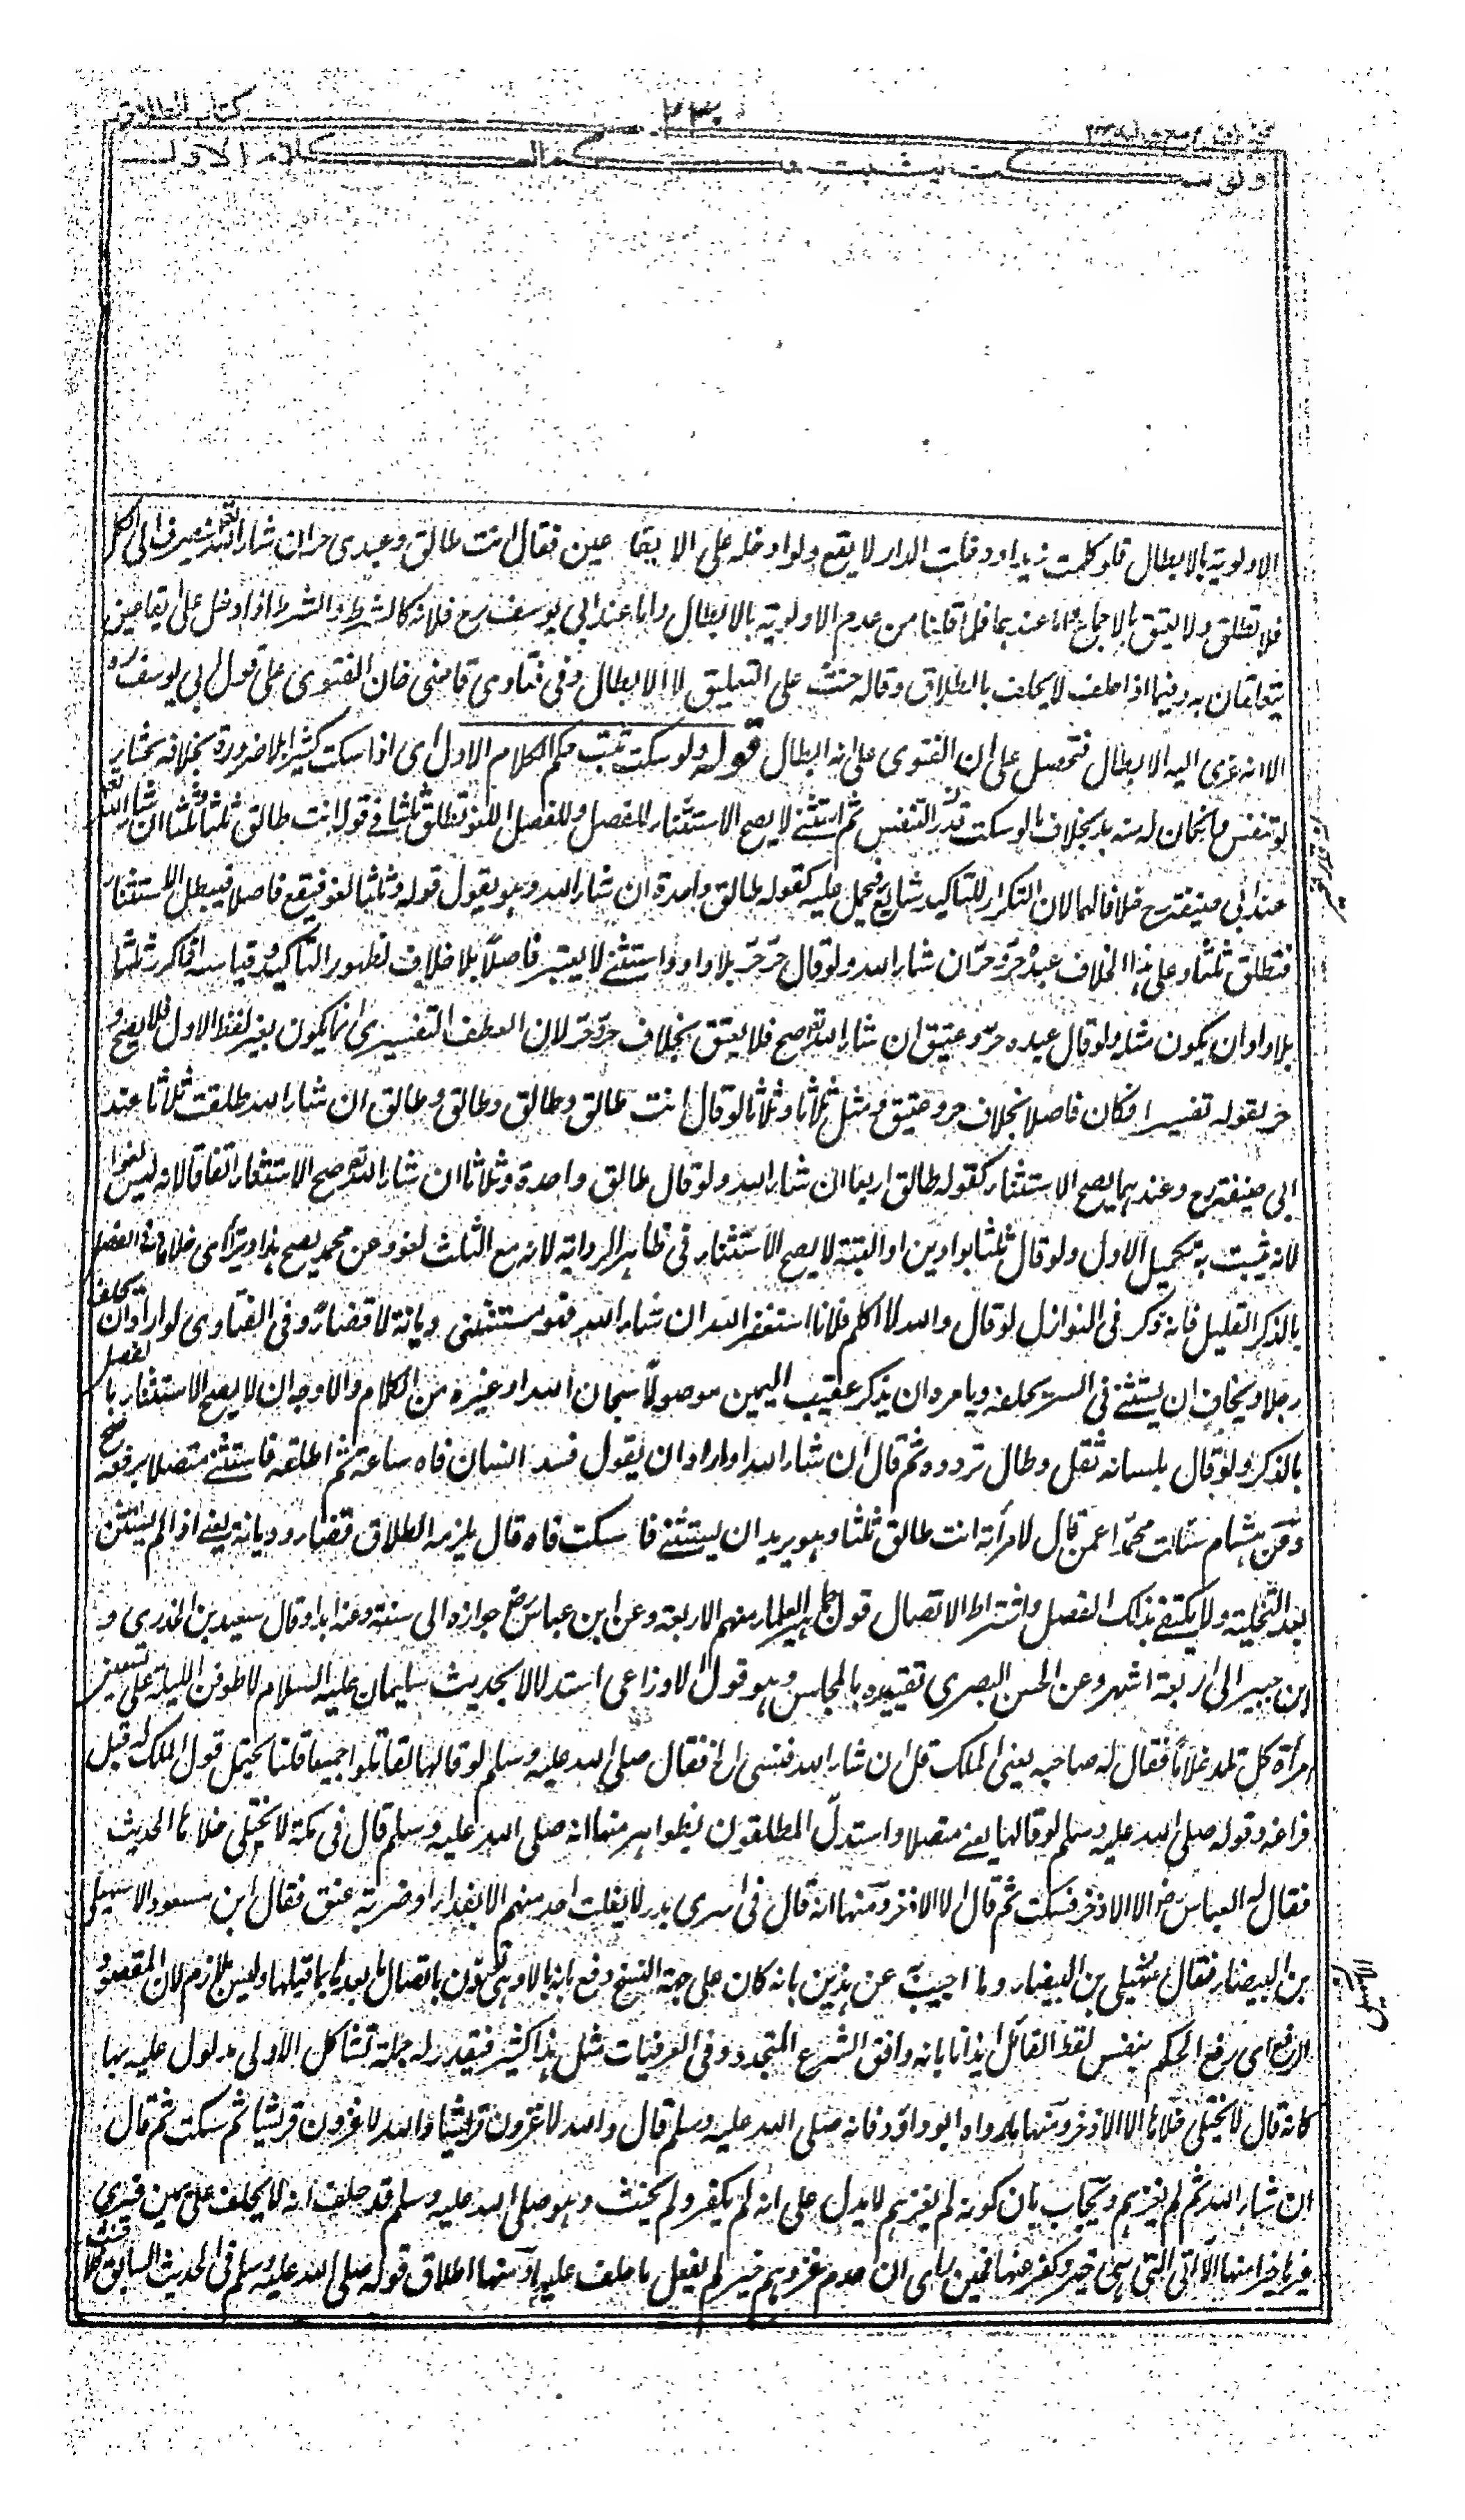 كتاب الطلاق
٢٣٠
ولو سكت يثبت حكم الكلام الاول
الاولوية بالابطال فلو كلمت زيدا ودخلت الدار لا يقع ولو ادخله على الايقاعين فقال انت طالق وعبدى حر ان شاء الله تعالى ينصرف الى الكل
فلا تطلق ولا يعتق بالاجماع اما عندهما فلما قلنا من عدم الاولوية بالابطال واما عند ابي يوسف رح فلانه كالشرط والشرط اذا دخل على ايقاعين
يتعلقان به وفيما اذا حلف لا يحلف بالطلاق وقاله حنث على التعليق لا الابطال وفى فتاوى قاضى خان الفتوى على قول ابي يوسف رح
الا انه عزى اليه الابطال فتحصل على ان الفتوى على انه ابطال قوله ولو سكت ثبت حكم الكلام الاول اى اذا سكت كثيرا بلا ضرورة بخلافه بجشاء
لو تنفس وان كان له منه بد بخلاف ما لو سكت قدر التنفس ثم استثنى لا يصح الاستثناء للفصل وللفصل اللغو تطلق ثلثا فى قوله انت طالق ثلثا وثلثا ان شاء الله تعالى
عند ابي حنيفة رح خلافا لهما لان التكرار للتاكيد شايع فيحمل عليه كقوله طالق واحدة ان شاء الله وهو يقول قوله وثلثا لغو فيقع فاصلا فيبطل الاستثناء
فتطلق ثلثا وعلى هذا الخلاف عبده حر وحر ان شاء الله ولو قال حر حر بلا واو واستثنى لا يعتبر فاصلا بلا خلاف لظهور التاكيد وقياسه اذا كرر ثلثا
بلا واو ان يكون مثله ولو قال عبده حر وعتيق ان شاء الله تعالى صح فلا يعتق بخلاف حر وحر لان العطف التفسيرى انما يكون بغير لفظ الاول فلا يصح و
حر لقوله تفسيرا فكان فاصلا بخلاف حر وعتيق ومثل ثلاثا وثلاثا لو قال انت طالق وطالق وطالق وطالق ان شاء الله طلقت ثلاثا عند
ابى حنيفة رح وعندهما يصح الاستثناء كقوله طالق اربعا ان شاء الله ولو قال طالق واحدة وثلاثا ان شاء الله تعالى صح الاستثناء اتفاقا لانه ليس لغوا
لانه يثبت به تكميل الاول ولو قال ثلثا بوادين او البتة لا يصح الاستثناء فى ظاهر الرواية لانه مع الثلث لغو وعن محمد يصح خلافا فى الفصل
بالذكر القليل فانه ذكر فى النوازل لو قال والله لا اكلم فلانا استغفر الله ان شاء الله فهو مستثنى ديانة لا قضاء وفى الفتاوى لو اراد ان يحلف
رجلا ويخاف ان يستثنى فى السر يحلفه ويامره ان يذكر عقيب اليمين موصولا سبحان الله او غيره من الكلام والاوجه ان لا يصح الاستثناء بالفصل
بالذكر ولو قال بلسانه ثقل وطال تردده ثم قال ان شاء الله او اراد ان يقول فسد انسان فاه ساعة ثم اطلقه فاستثنى متصلا برفعه صح
وعن هشام سئلت محمدا عمن قال لامرأته انت طالق ثلثا وهو يريد ان يستثنى فامسكت فاه قال يلزمه الطلاق قضاء وديانة يعنى اذا لم يستثن
بعد التخلية ولا يكتفى بذلك الفصل واشتراط الاتصال قول جماهير العلماء منهم الاربعة وعن ابن عباس رض جوازه الى سنة وعنه ابدا وقال سعيد بن الخدرى و
ابن جبير الى اربعة اشهر وعن الحسن البصرى تقييده بالمجلس وهو قول الاوزاعى استدلالا بحديث سليمان عليه السلام لاطوفن الليلة على تسعين
امرأة كل تلد غلاما فقال له صاحبه يعنى الملك قل ان شاء الله فنسى الخ فقال صلى الله عليه وسلم لو قالها لقاتلوا جميعا قلنا يحتمل قول الملك له قبل
فراغه وقوله صلى الله عليه وسلم لو قالها يعنى متصلا واستدل المطلقون بظواهر منها انه صلى الله عليه وسلم قال فى مكة لا يختلى خلاها الحديث
فقال له العباس رض الا الاذخر فسكت ثم قال الا الاذخر ومنها انه قال فى اسرى بدر لا يفلت احد منهم الا بفداء او ضربة عنق فقال ابن مسعود الا سهيل
بن البيضاء فقال الا سهيل بن البيضاء وما اجيب عن هذين بانه كان على جهة النسخ دفع بانه بالا وهى تؤذن باتصال ما بعدها بما قبلها وليس بلازم لان المقصود
الرفع اى رفع الحكم بنفس لفظ القائل ايذانا بانه وافق الشرع المتجدد وفى العرفيات مثل هذا كثير فيقدر له جملة تشاكل الاولى مدلول عليه بها
كانه قال لا يختلى خلاها الا الاذخر ومنها ما رواه ابو داؤد فانه صلى الله عليه وسلم قال والله لاغزون قريشا والله لاغزون قريشا ثم سكت ثم قال
ان شاء الله ثم لم يغزهم ويجاب بان كونه لم يغزهم لا يدل على انه لم يكفر ولم يحنث وهو صلى الله عليه وسلم قد حلف انه لا يحلف على يمين فيرى
غيرها خيرا منها الا اتى التى هى خير وكفر عنها فحين راى ان عدم غزوهم خير لم يفعل ما حلف عليه ومنها اطلاق قوله صلى الله عليه وسلم فى الحديث السابق